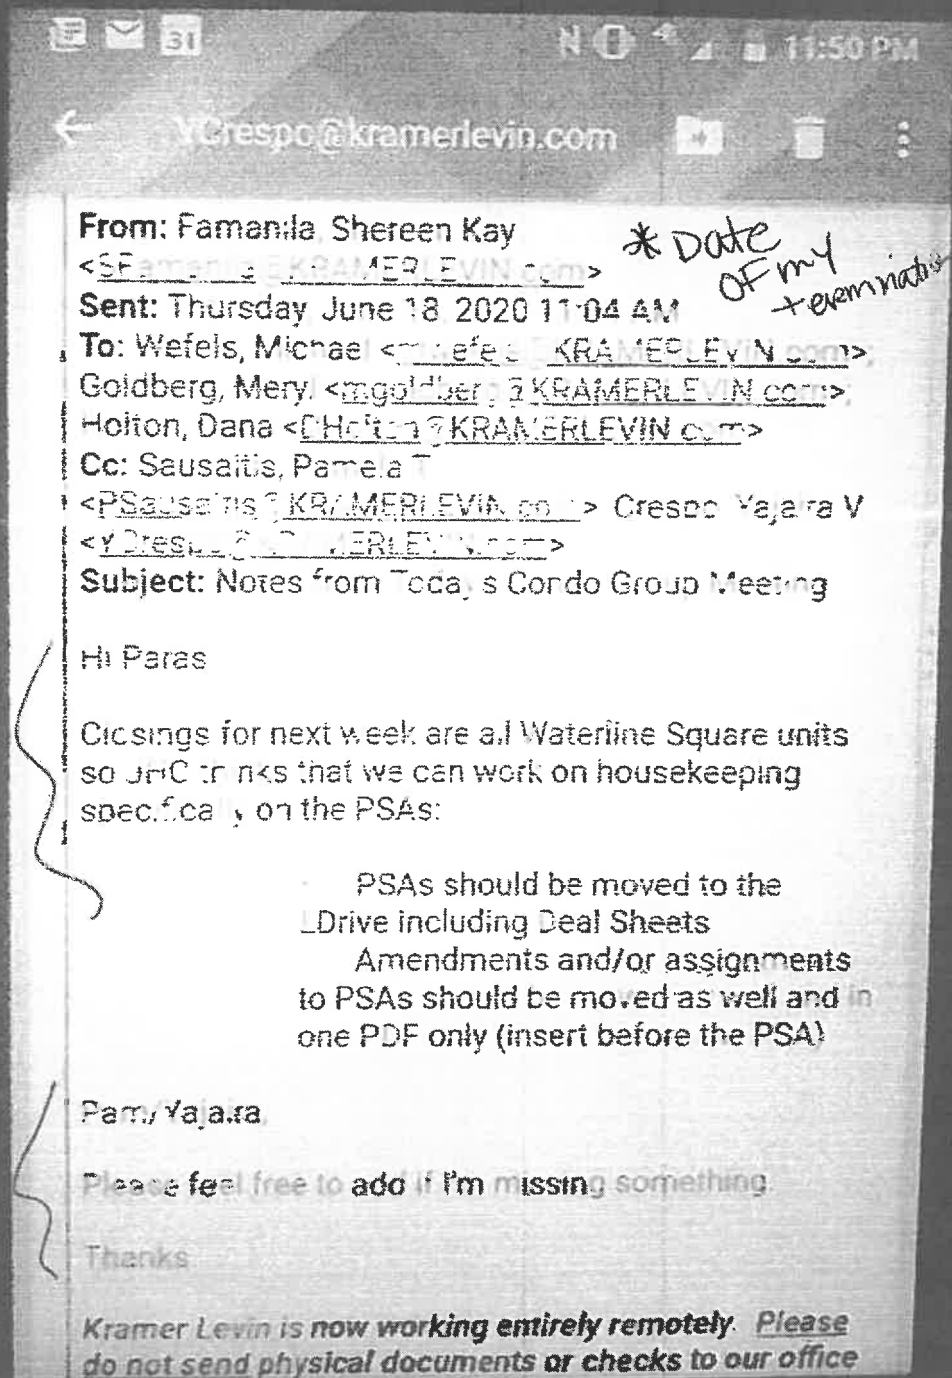 31 N 11:50 PM
YCrespo@kramerlevin.com
From: Famanila, Shereen Kay
* Date
OF my
termination
Sent: Thursday, June 18, 2020 11:04 AM
To: Wefels, Michael
Goldberg, Meryl <mgoldberg@KRAMERLEVIN.com>;
Holton, Dana <DHolton@KRAMERLEVIN.com>
Cc: Sausaitis, Pamela T
<PSausaitis@KRAMERLEVIN.com> Crespo Yajaira V
<YCrespo@KRAMERLEVIN.com>
Subject: Notes from Today's Condo Group Meeting
Hi Paras
Closings for next week are all Waterline Square units
so thinks that we can work on housekeeping
specifically on the PSAs:
PSAs should be moved to the
LDrive including Deal Sheets
Amendments and/or assignments
to PSAs should be moved as well and in
one PDF only (insert before the PSA)
Pam/Yajaira,
Please feel free to add if I'm missing something.
Thanks
Kramer Levin is now working entirely remotely. Please
do not send physical documents or checks to our office